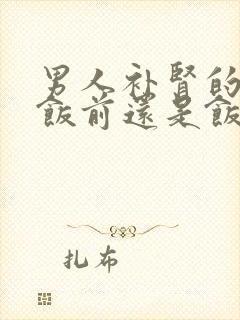 男人补肾的
飯前還是飯
扎布